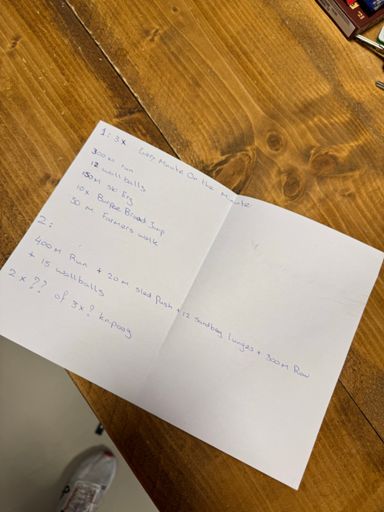 1: 3x Every Minute On the Minute
300m run
12 wallballs
150m ski Erg
10x Burpee Broad Jump
50 m Farmers walk
2:
400m Run + 20m sled Push + 12 sandbag lunges + 300m Row
+ 15 wallballs
2x ?? of 3x? knipoog